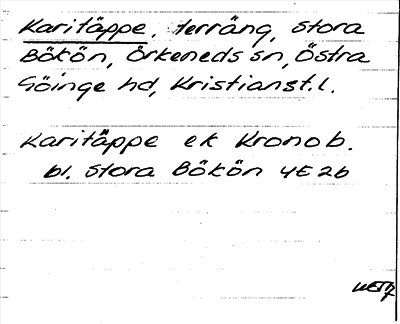 Karitäppe, terräng, Stora
Bökön, Örkeneds sn, Östra
Göinge hd, Kristianst.l.
Karitäppe ek Kronob.
bl. Stora Bökön 4E2b